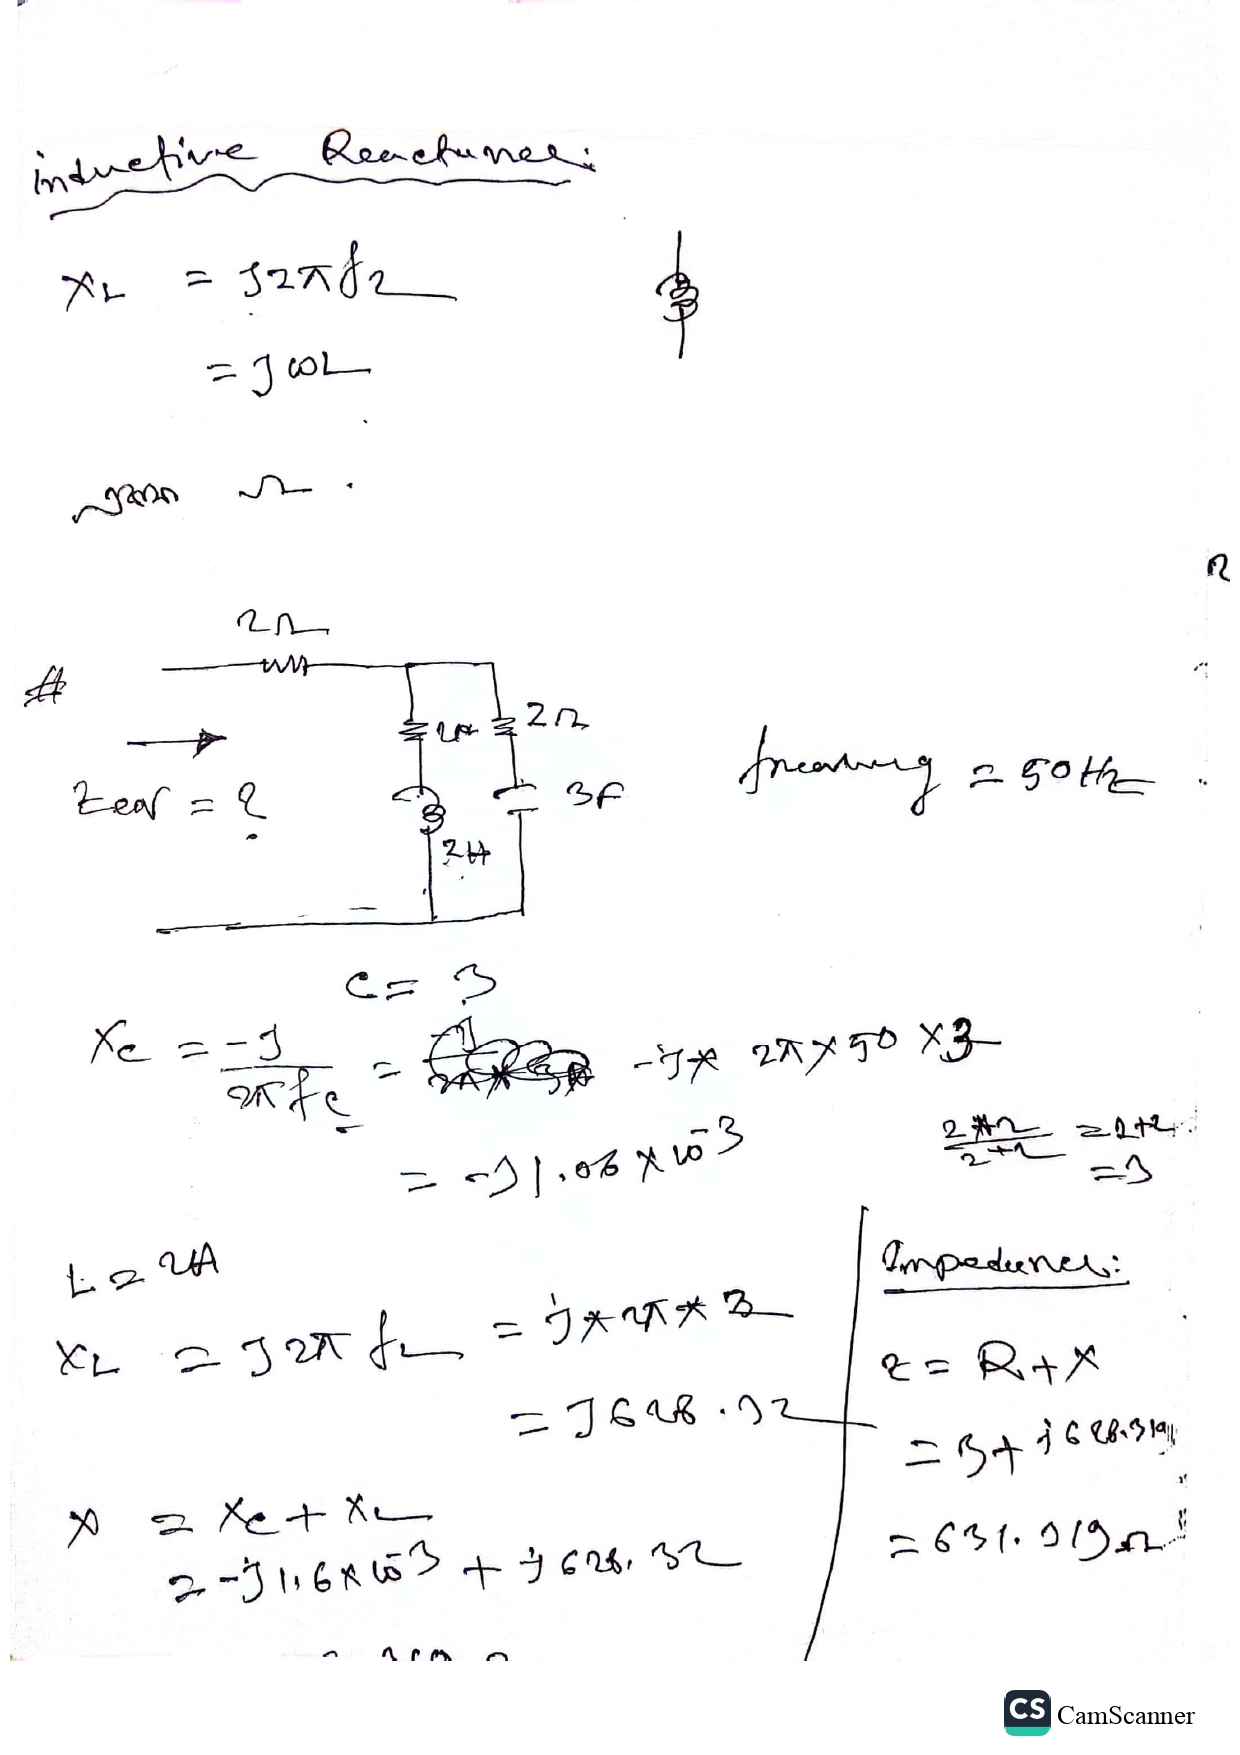 inductive Reactance:
XL = J2πfL
= JωL
Ω.
2Ω
#
2Ω
2Ω
Zeq = ?
3F
frequency = 50Hz
2H
C = 3
Xc = -J / 2πfc = -j* 2π×50×3
= -J1.06×10^-3
2*2 / 2+2 = 1+2
= 3
L = 2H
XL = J2πfL = j*2π*3
= J628.32
X = Xc + XL
= -J1.6×10^-3 + j628.32
Impedance:
Z = R+X
= 3+j628.319
= 631.319Ω
CS CamScanner